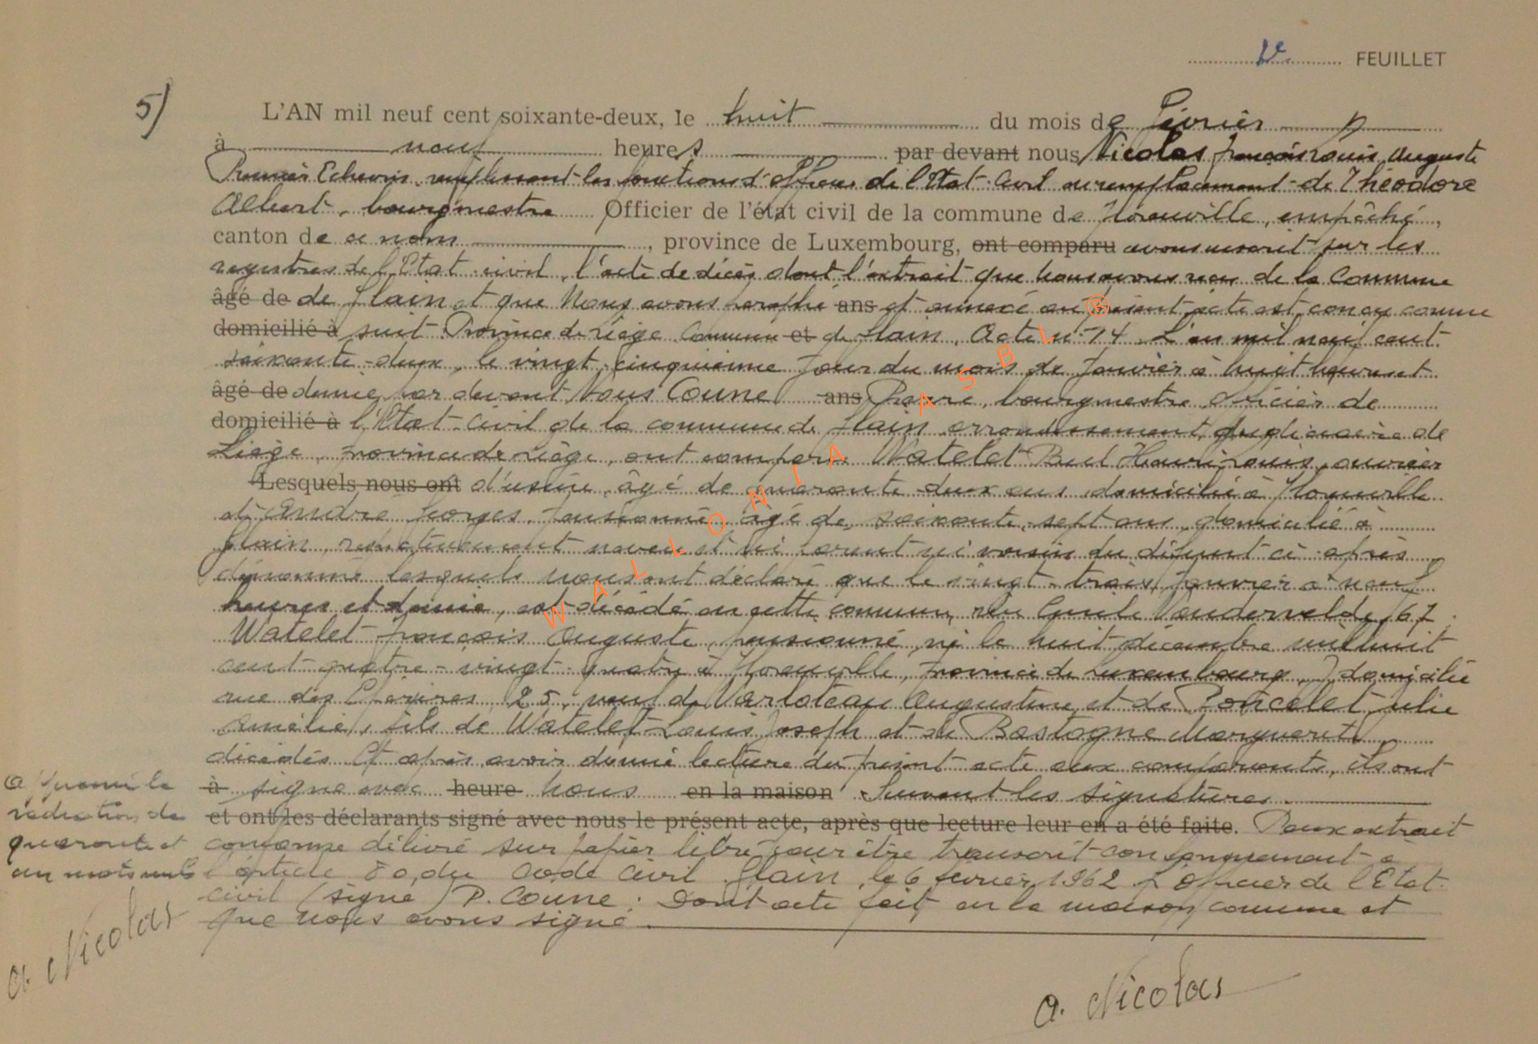 Ve FEUILLET
5)
L'AN mil neuf cent soixante-deux, le huit du mois de Février
à neuf heures par devant nous Nicolas François Louis Auguste
Premier Echevin, remplissant les fonctions d'officier de l'Etat-Civil en remplacement de Théodore
Albert, bourgmestre Officier de l'état civil de la commune de Florenville, empêché,
canton de ce nom, province de Luxembourg, ont comparu avons inscrit sur les
registres de l'Etat-civil, l'acte de décès dont l'extrait que nous avons reçu de la Commune
âgé de de Slain et que Nous avons ans et annexé au présent acte est conçu comme
domicilié à suit. Province de Liège Commune et de Slain. Acte n° 14. L'an mil neuf cent
soixante-deux, le vingt cinquième jour du mois de Janvier à huit heures et
âgé de demie, par devant Nous Coune ans Pierre, bourgmestre, officier de
domicilié à l'Etat-Civil de la commune de Slain arrondissement judiciaire de
Liège, province de Liège, ont comparu Watelet Henri Louis, ouvrier
Lesquels nous ont d'usine, âgé de quarante-deux ans, domicilié à Florenville
et André pensionné âgé de soixante-sept ans, domicilié à
Slain, respectivement neveu et voisin du défunt ci-après
dénommé lesquels nous ont déclaré que le vingt-trois janvier à neuf
heures et demie, est décédé en cette commune, rue Emile Vandervelde, 67
Watelet François Auguste, pensionné, né le huit décembre mil huit
cent-quatre-vingt-quatre à Florenville, province de Luxembourg, domicilié
rue des 25, veuf de Varloteau Augustine et de Poncelet Julie
Amélie, fils de Watelet Louis Joseph et de Bastogne Marguerite
décédés. Et après avoir donné lecture du présent acte aux comparants, ils ont
à signé avec heure nous en la maison Suivent les signatures.
et ont les déclarants signé avec nous le présent acte, après que lecture leur en a été faite. Pour extrait
conforme délivré sur papier libre pour être transcrit conformément à
l'article 80 du Code Civil. Slain, le 6 février 1962. L'Officier de l'Etat-
civil (signé) P. Coune. Dont acte fait en la maison commune et
que nous avons signé.
la
rédaction de
quarante et
un mots nuls
A. Nicolas
A. Nicolas
WALLONIA ASBL